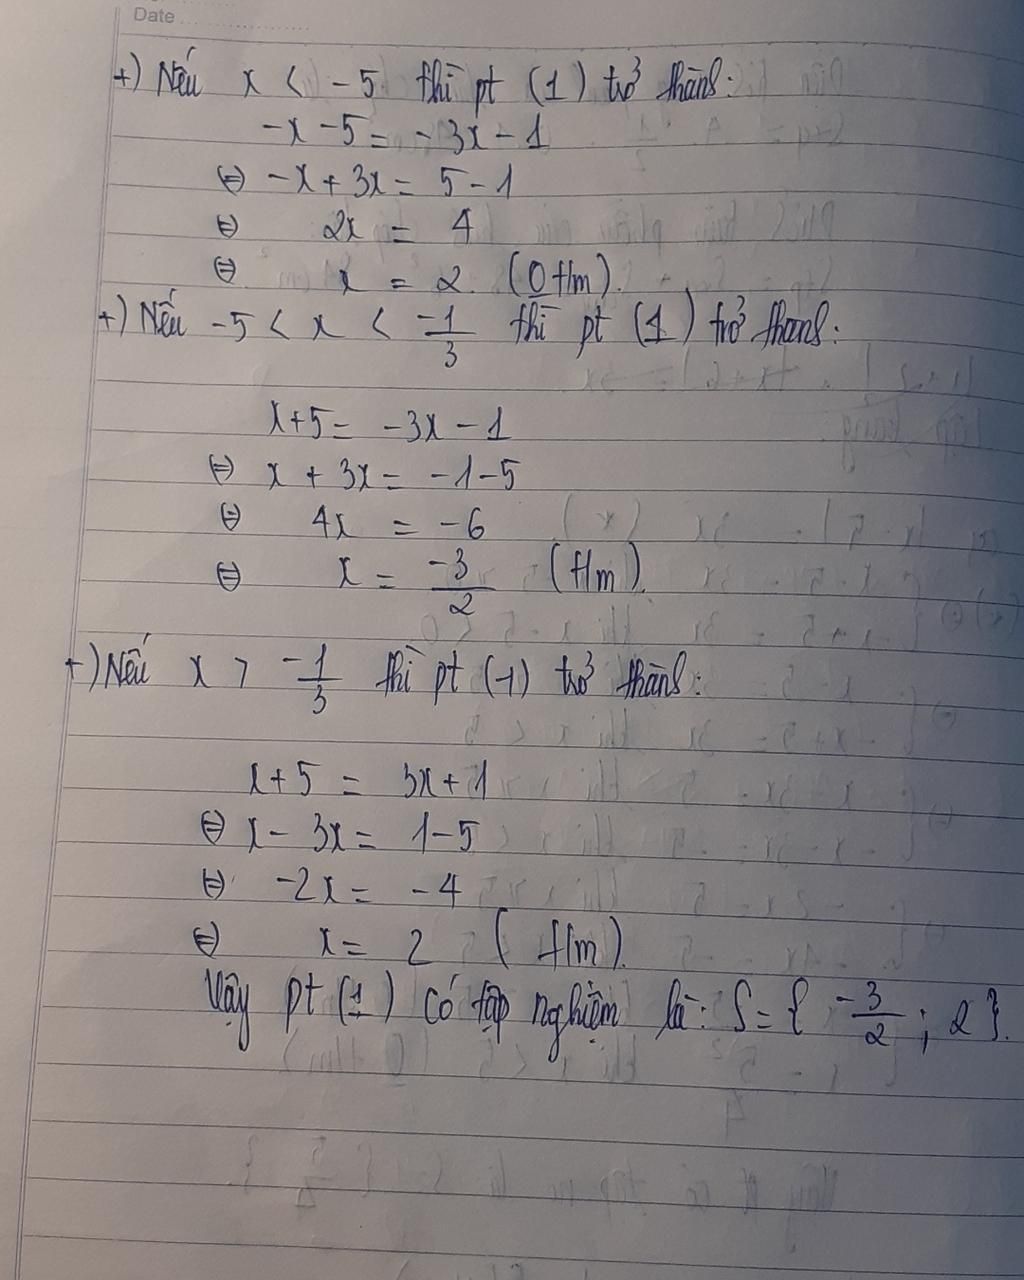 Date
+) Nếu x < -5 thì pt (1) trở thành:
-x - 5 = -3x - 1
⇔ -x + 3x = 5 - 1
⇔ 2x = 4
⇔ x = 2 (0 t/m).
+) Nếu -5 < x < -1/3 thì pt (1) trở thành:
x + 5 = -3x - 1
⇔ x + 3x = -1 - 5
⇔ 4x = -6
⇔ x = -3/2 (t/m).
+) Nếu x > -1/3 thì pt (1) trở thành:
x + 5 = 3x + 1
⇔ x - 3x = 1 - 5
⇔ -2x = -4
⇔ x = 2 (t/m).
Vậy pt (1) có tập nghiệm là: S = { -3/2 ; 2 }.